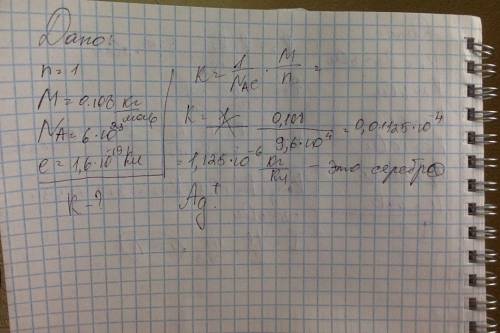 Дано:
n = 1
M = 0.108 кг/моль
NA = 6 · 10²³
e = 1,6 · 10⁻¹⁹ Кл
K - ?
K = 1/NAe · M/n =
K = 0,108/9,6·10⁴ = 0,01125·10⁻⁴
= 1,125·10⁻⁶ кг/Кл - это серебро
Ag⁺